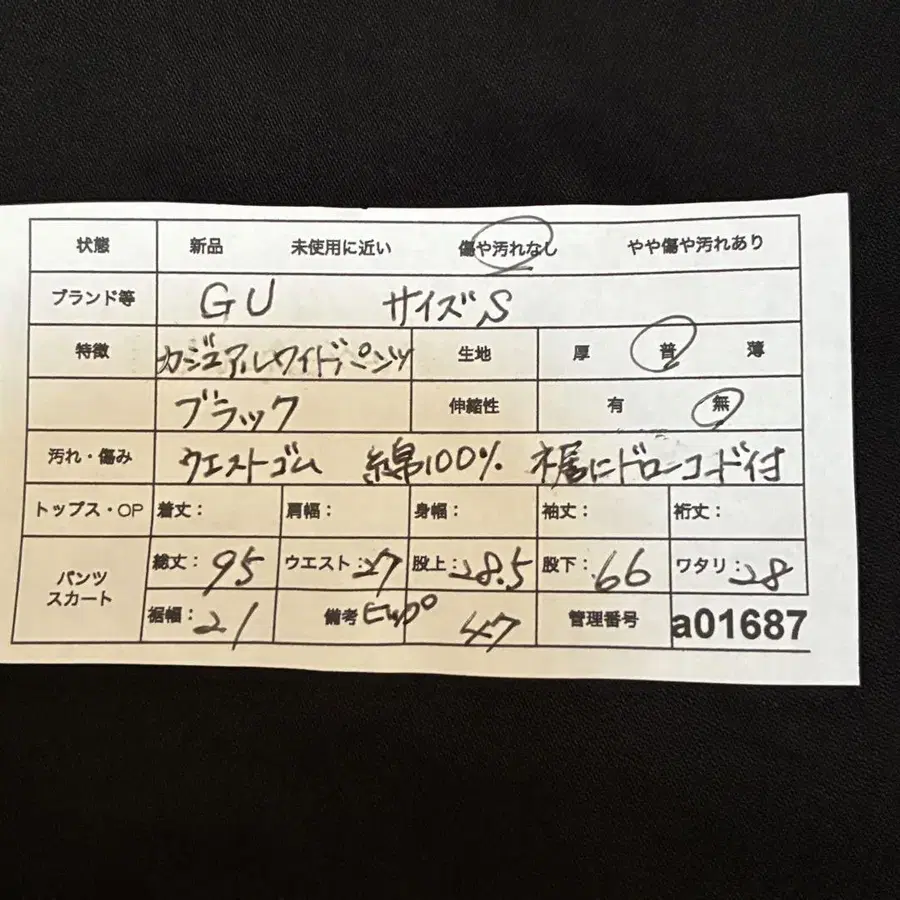 状態 新品 未使用に近い 傷や汚れなし やや傷や汚れあり
ブランド等 GU サイズS
特徴 カジュアルワイドパンツ 生地 厚 普 薄
ブラック 伸縮性 有 無
汚れ・傷み ウエストゴム 綿100% 裾にドローコード付
トップス・OP 着丈： 肩幅： 身幅： 袖丈： 裄丈：
パンツ スカート 総丈：95 ウエスト：27 股上：28.5 股下：66 ワタリ：28
裾幅：21 備考 ヒップ 47 管理番号 a01687